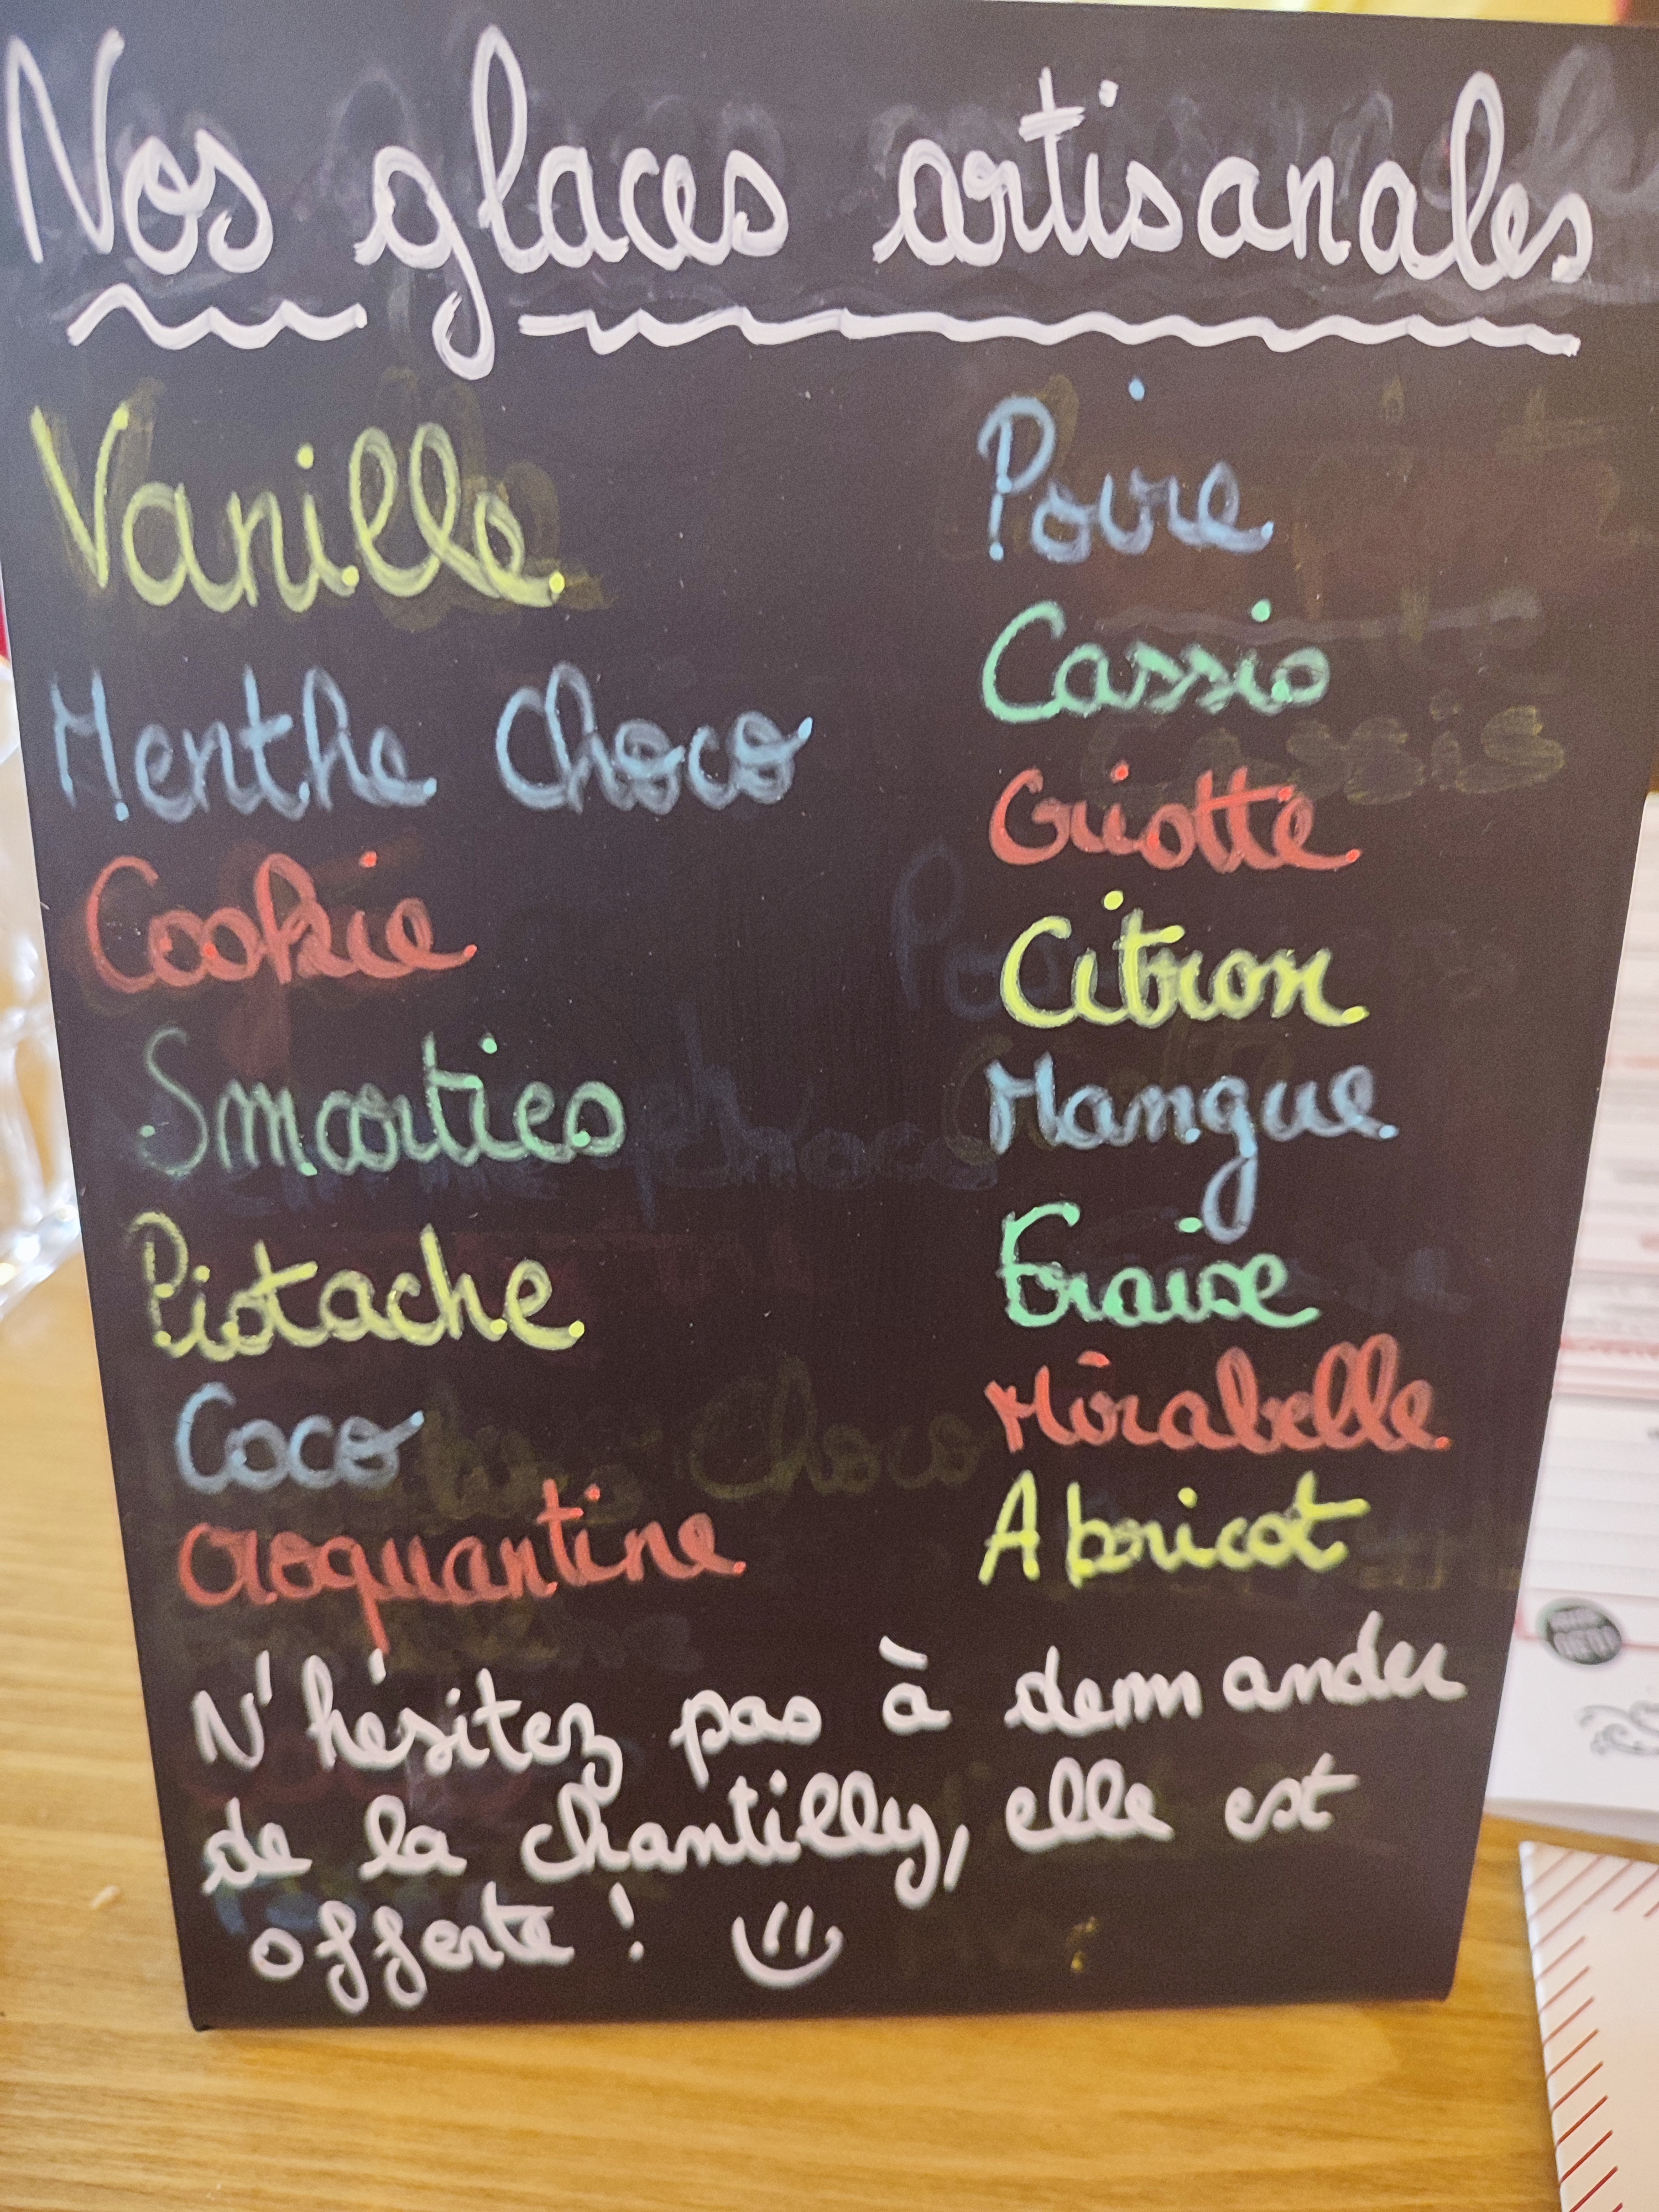 Nos glaces artisanales
Vanille
Menthe Choco
Cookie
Smarties
Pistache
Coco
Croquantine
Poire
Cassis
Griotte
Citron
Mangue
Fraise
Mirabelle
Abricot
N'hésitez pas à demander
de la chantilly, elle est
offerte !